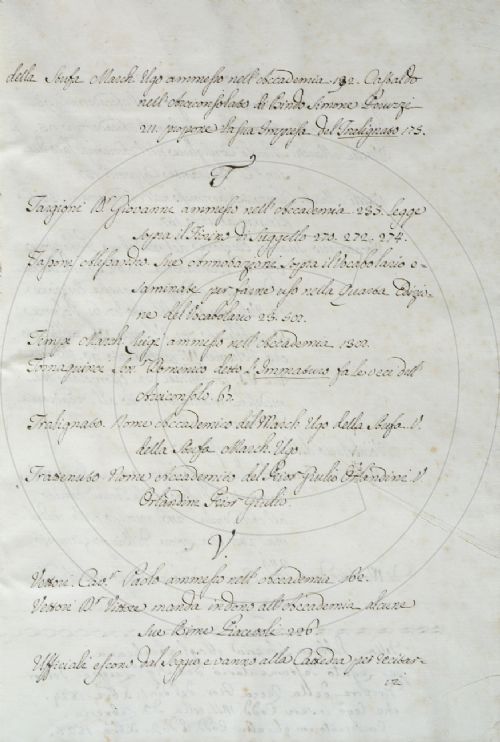 della Stufa March. Ugo ammesso nell' Accademia 192. Castaldo
nell' Arciconsolato di Bindo Simone Peruzzi
211. propone la sua Impresa del Tralignato 175.
T
Targioni D.r Giovanni ammesso nell' Accademia 233. legge
sopra il di Suggello 270. 272. 274.
Tassoni Alessandro. Sue Annotazioni sopra il Vocabolario e-
saminate per farne uso nella Quarta Edizio-
ne del Vocabolario 23.
Tempi March. Luigi ammesso nell' Accademia
Tornaquinci Sen.r Domenico detto l' Immaturo fa le veci dell'
Arciconsolo 67.
Tralignato. Nome Accademico del March. Ugo della Stufa. V.
della Stufa March. Ugo.
Trattenuto Nome Accademico del Prior Giulio Orlandini V.
Orlandini Prior Giulio.
V.
Vettori Cav.r Paolo ammesso nell' Accademia 162.
Vettori D.r Vittore manda in dono all' Accademia alcune
sue Rime Piacevoli 226.
Uffiziali escono dal Seggio e vanno alla Cattedra per recitar-
vi